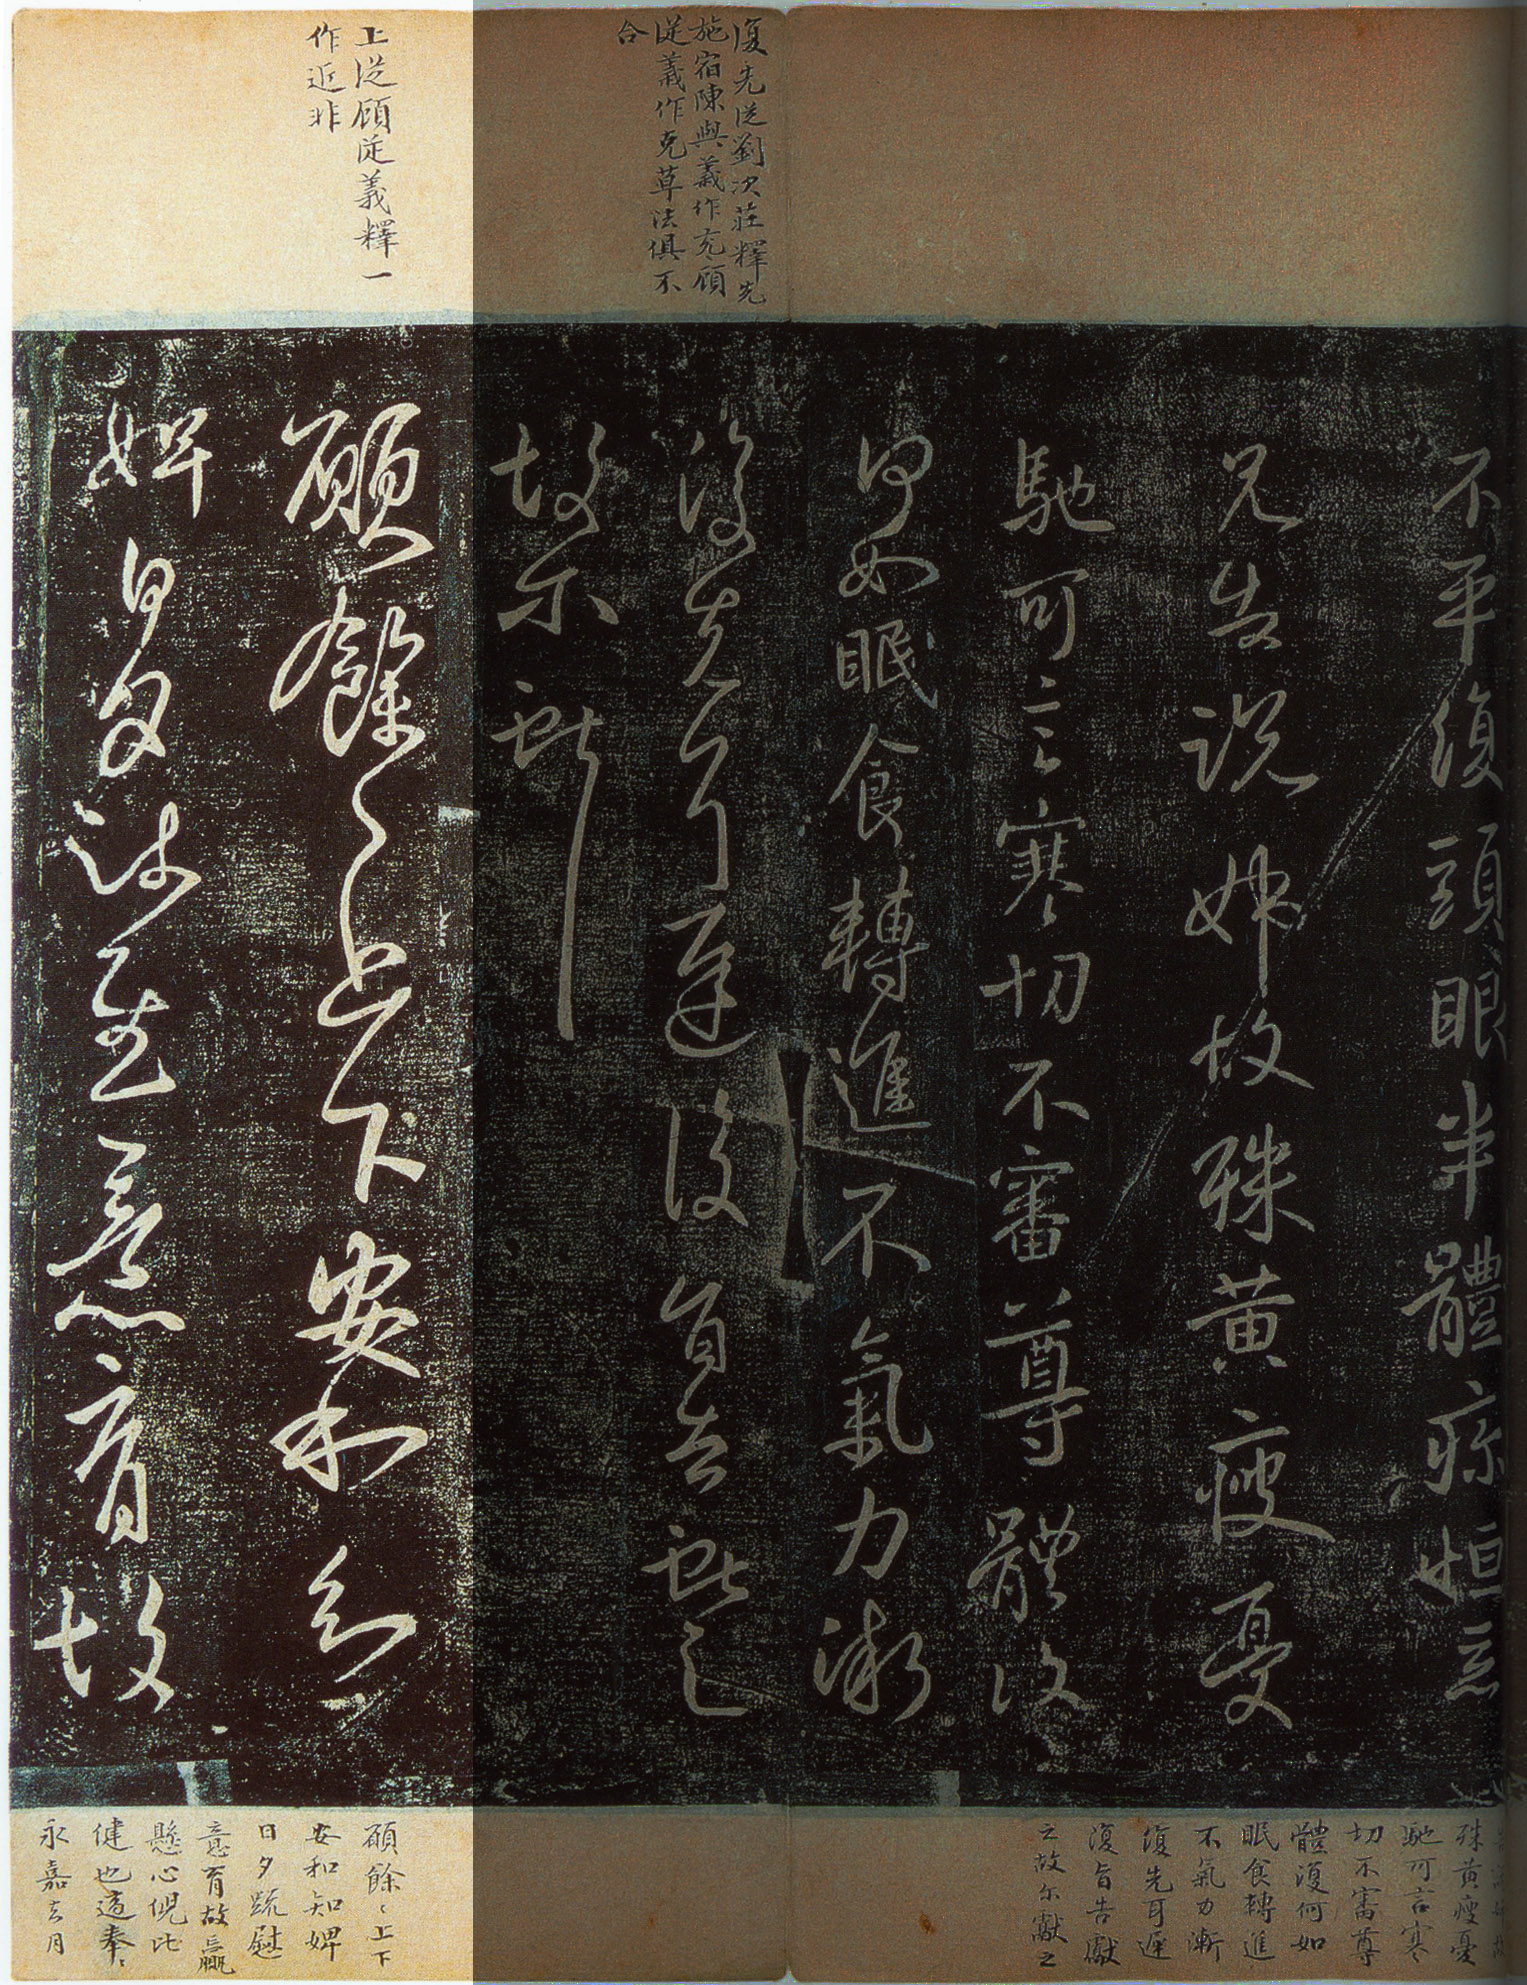 復先從劉次莊釋先
施宿陳與義作充顧
從義作克草法俱不
合
上從顧從義釋一
作近非
不平復頭眼半體疼恒意
兄告說姊故殊黃瘦憂
馳可言寒切不審尊體復
何如眠食轉進不氣力漸
復先耳遲復旨告獻之
故尔獻
願餘〻上下安和知
婢日夕疏慰意育故
殊黃瘦憂
馳可言寒
切不審尊
體復何如
眠食轉進
不氣力漸
復先耳遲
復旨告獻
之故尔獻之
願餘〻上下
安和知婢
日夕疏慰
意育故羸
懸心俔比
健也適奉〻
永嘉去月